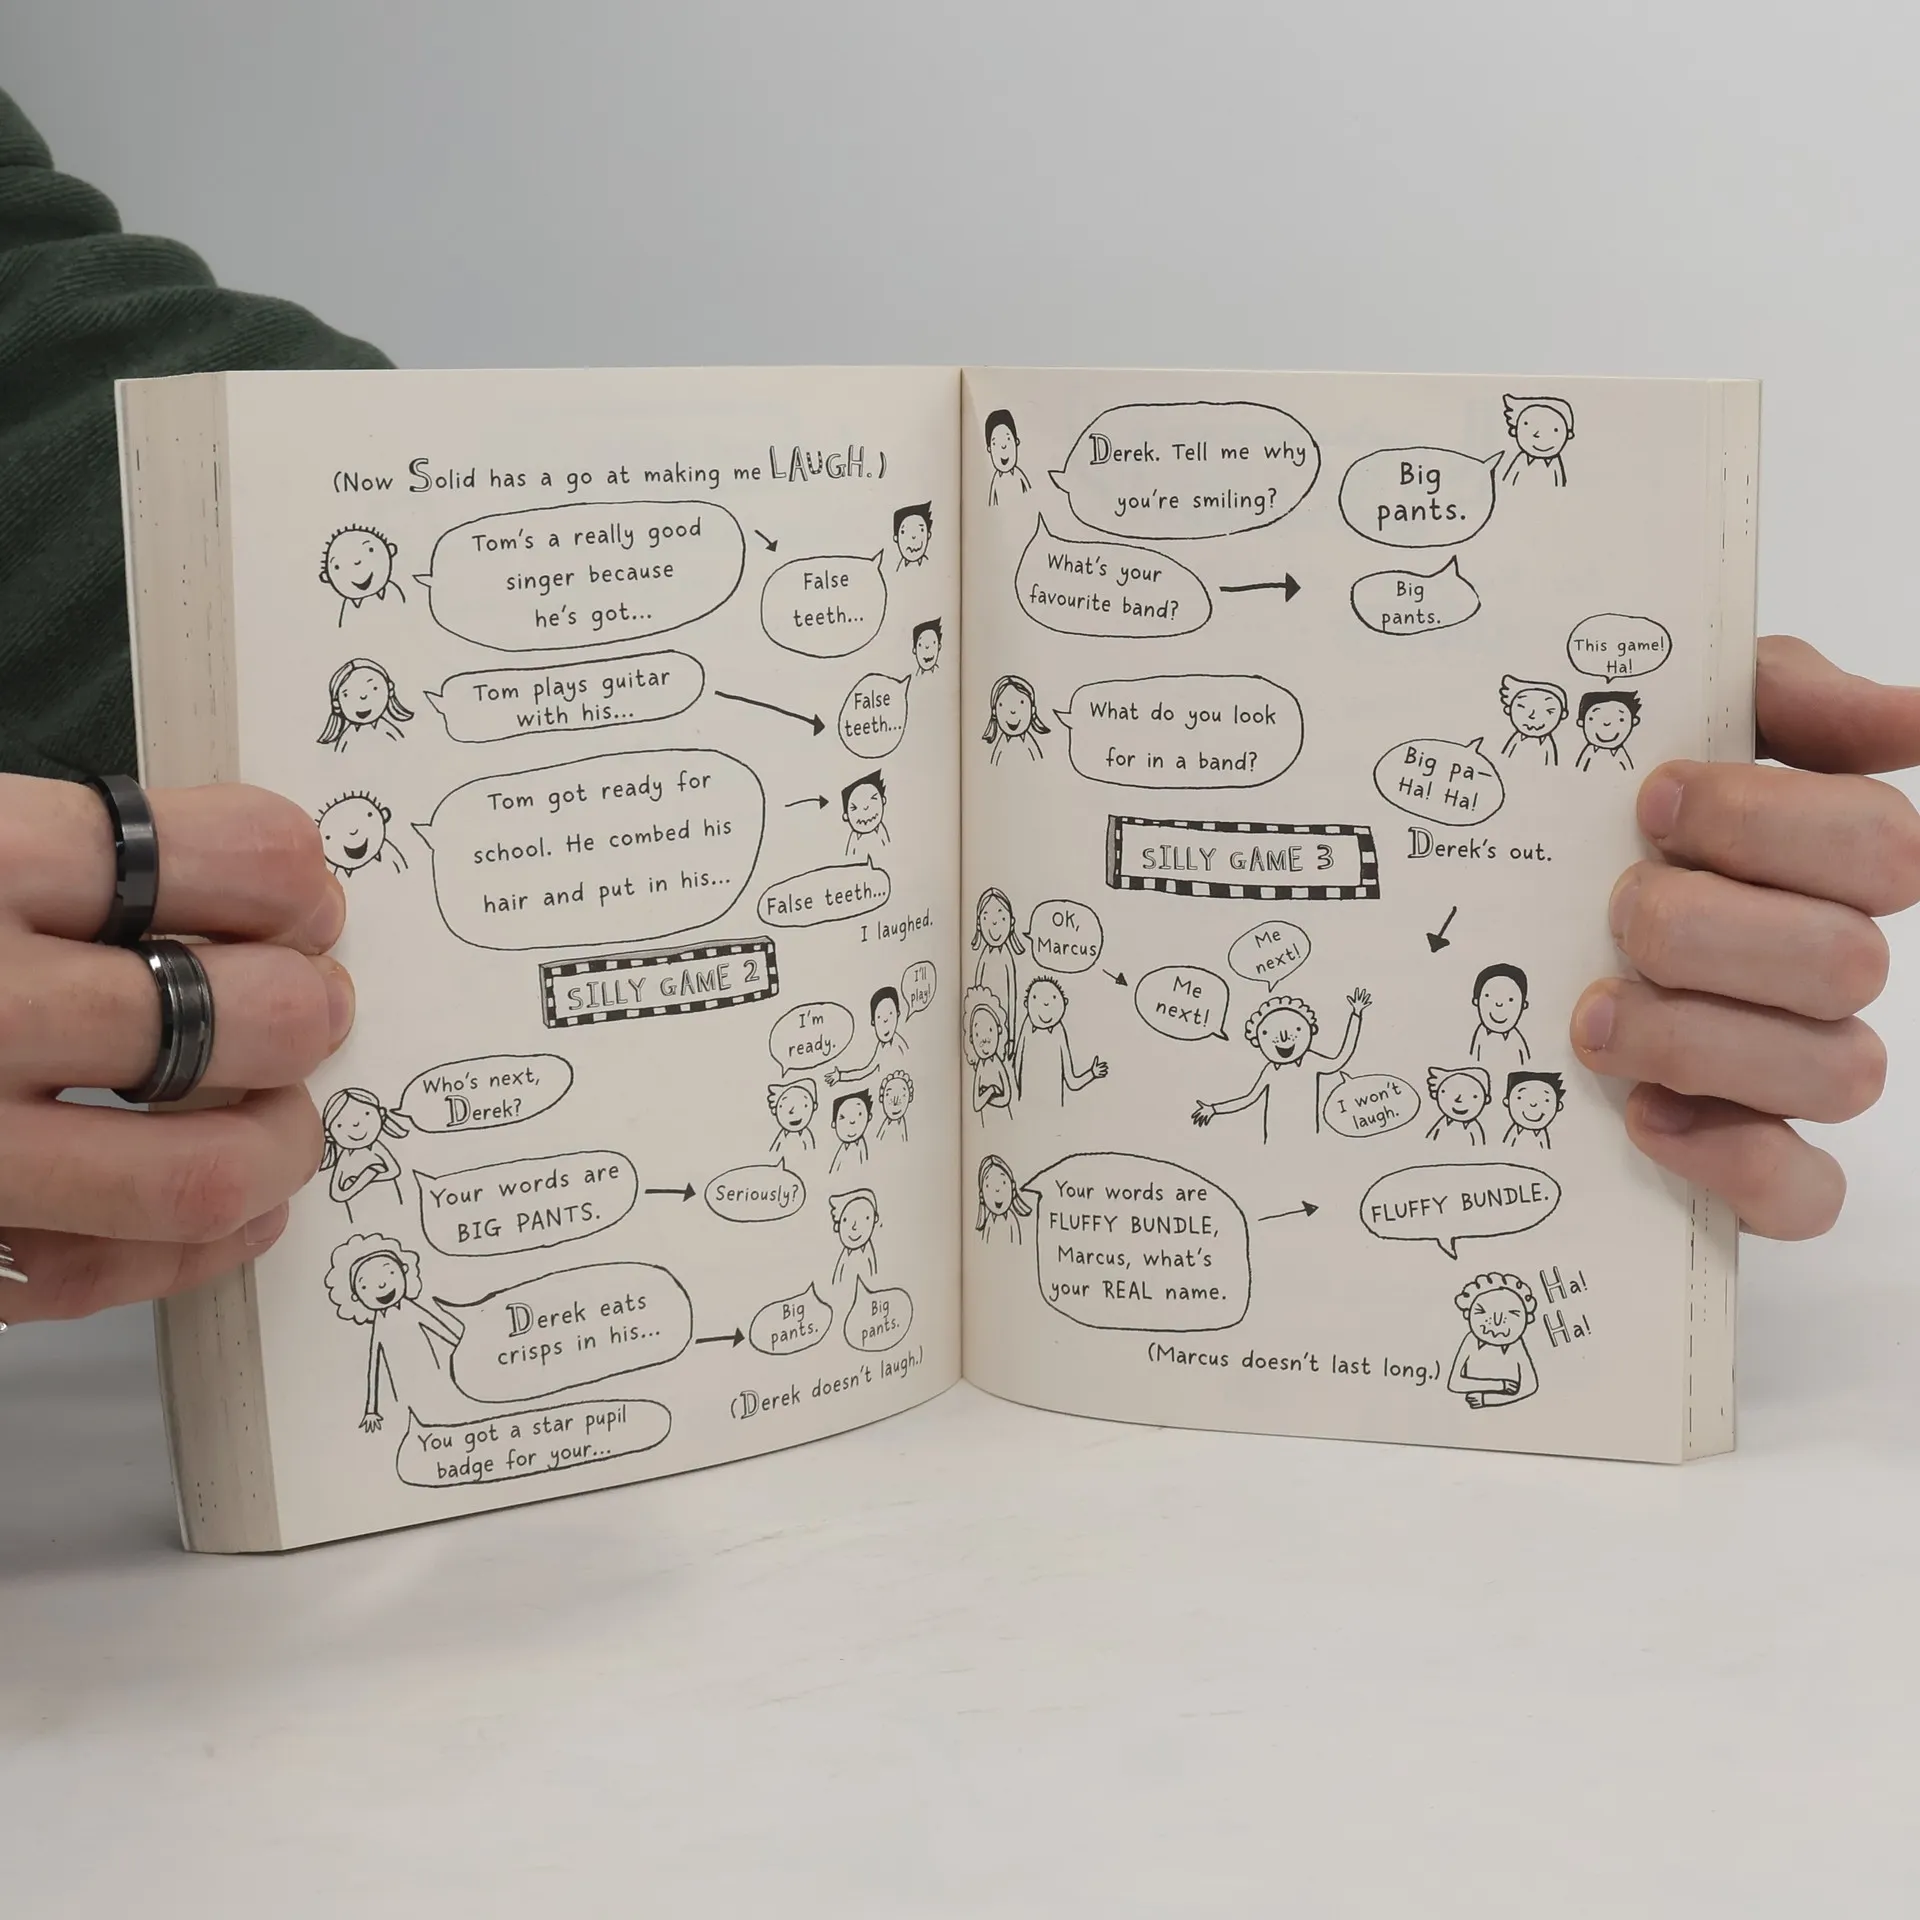 (Now Solid has a go at making me LAUGH.)
Tom's a really good
singer because
he's got...
False
teeth...
Tom plays guitar
with his...
False
teeth...
Tom got ready for
school. He combed his
hair and put in his...
False teeth...
I laughed.
SILLY GAME 2
I'll
play!
I'm
ready.
Who's next,
Derek?
Your words are
BIG PANTS.
Seriously?
Derek eats
crisps in his...
Big
pants.
Big
pants.
(Derek doesn't laugh.)
You got a star pupil
badge for your...
Derek. Tell me why
you're smiling?
Big
pants.
What's your
favourite band?
Big
pants.
This game!
Ha!
What do you look
for in a band?
Big pa-
Ha! Ha!
Derek's out.
SILLY GAME 3
OK,
Marcus
Me
next!
Me
next!
I won't
laugh.
Your words are
FLUFFY BUNDLE,
Marcus, what's
your REAL name.
FLUFFY BUNDLE.
Ha!
Ha!
(Marcus doesn't last long.)